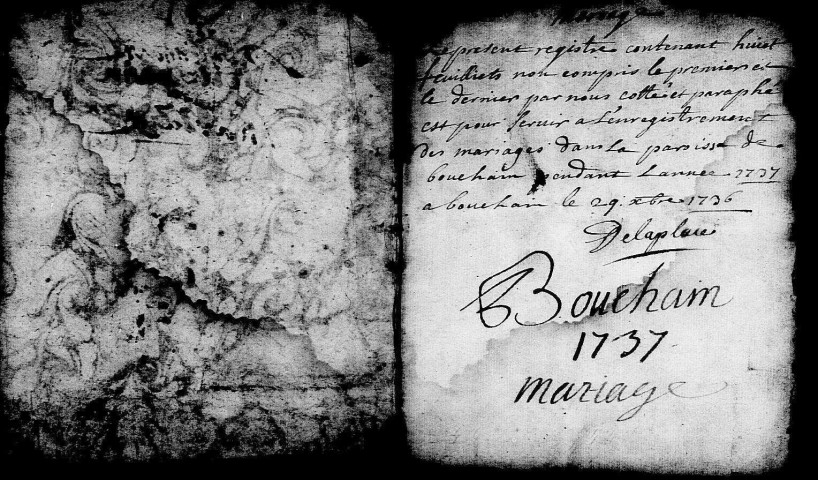 mariage
Le present registre contenant huict
feuillets non compris le premier et
le dernier par nous cotté et paraphé
est pour servir a l'enregistrement
des mariages dans la paroisse de
bouchain pendant l'année 1737
a bouchain le 29 xbre 1736
Delaplace
Bouchain
1737
mariage